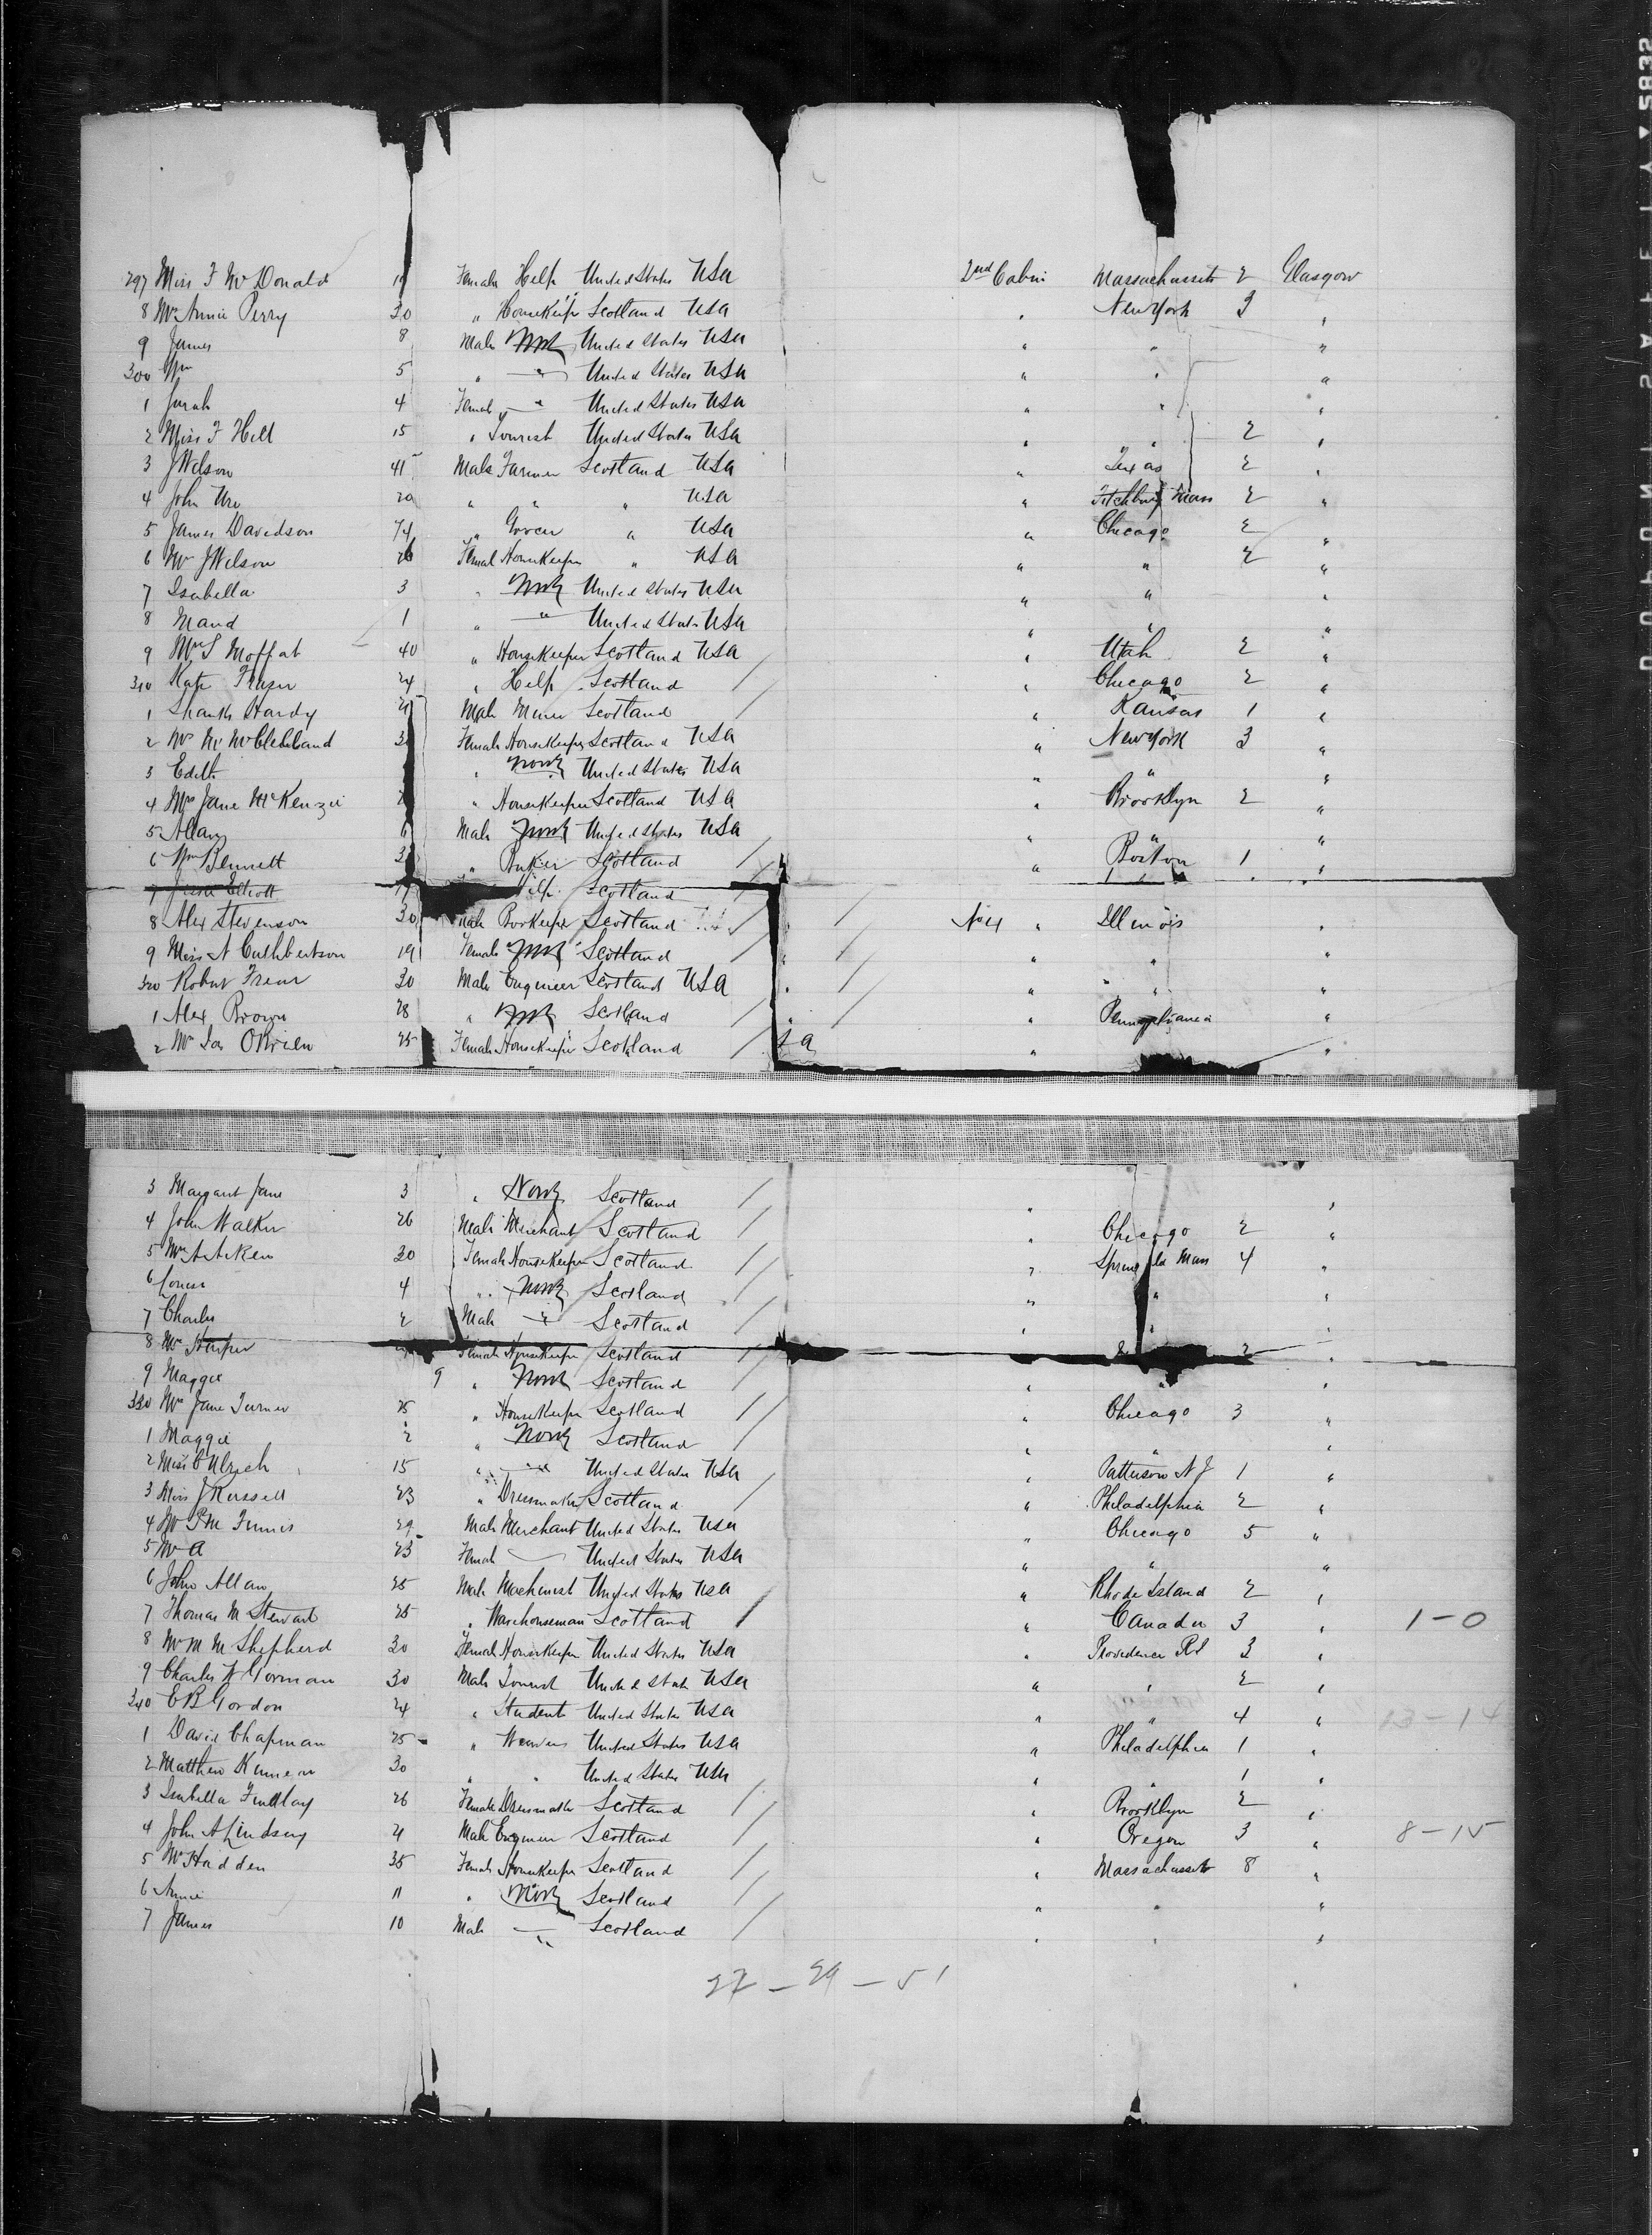 297 Miss F McDonald Female Help United States USA 2nd Cabin Massachussets 2 Glasgow
8 Mrs Annie Perry 30 " Housekeep'r Scotland USA " New York 3 "
9 James 8 Male None United States USA " " "
300 Wm 5 " " United States USA " " "
1 Sarah 4 Female " United States USA " " "
2 Miss F Hill 15 " Tourist United States USA " " 2 "
3 J Wilson 41 Male Farmer Scotland USA " Texas 2 "
4 John Ure 29 " " " USA " Fitchburg Mass 2 "
5 James Davidson 74 " Grocer " USA " Chicago 2 "
6 Mrs J Wilson 26 Femal Housekeeper " USA " " 2 "
7 Isabella 3 " None United States USA " " "
8 Maud 1 " " United States USA " " "
9 Mrs S Moffat 40 " Housekeeper Scotland USA " Utah 2 "
310 Kate Fraser 24 " Help Scotland / " Chicago 2 "
1 Shanks Hardy Male Miner Scotland / " Kansas 1 "
2 Mrs M McClelland Female Housekeeper Scotland USA " New York 3 "
3 Edith " None United States USA " " "
4 Mrs Jane McKenzie " Housekeeper Scotland USA " Brooklyn 2 "
5 Allan 6 Male None United States USA " " "
6 Wm Bennett " Baker Scotland / " Boston 1 "
7 Elliott Help Scotland /
8 Alex Stevenson 30 Male Bookeeper Scotland / No 4 " Illinois "
9 Miss N Cuthbertson 19 Female None Scotland / / " " "
320 Robert 30 Male Engineer Scotland USA / " " "
1 Alex Brown 28 " None Scotland / / " Pennsylvania "
2 Mrs Jas OBrien 25 Female Housekeep'r Scotland / " "
3 Margaret Jane 3 " None Scotland / " "
4 John Walker 26 Male Merchant Scotland / " Chicago 2 "
5 Mrs Aitken 30 Female Housekeeper Scotland / " Mass 4 "
6 4 " None Scotland / " " "
7 Charles 2 Male " Scotland / " " "
8 Mrs Harper Female Housekeeper Scotland / 2 "
9 Maggie 9 " None Scotland / " " "
330 Mrs Jane Turner 25 " Housekeeper Scotland / " Chicago 3 "
1 Maggie 2 " None Scotland / " " "
2 Miss C Ulrich 15 " " United States USA " Patterson N J 1 "
3 Miss J Russell 23 " Dressmaker Scotland / " Philadelphia 2 "
4 29 Male Merchant United States USA " Chicago 5 "
5 Mrs A 23 Female United States USA " " "
6 John Allan 25 Male Machinist United States USA " Rhode Island 2 "
7 Thomas M Stewart 25 " Warehouseman Scotland / " Canada 3 " 1-0
8 Mrs M M Shepherd 30 Female Housekeeper United States USA " Providence RI 3 "
9 Charles W Gorman 30 Male Tourist United States USA " " 2 "
340 E B Gordon 24 " Student United States USA " " 4 " 13-14
1 David Chapman 25 " Weaver United States USA " Philadelphia 1 "
2 Matthew 30 " " United States USA " " 1 "
3 Isabella Findlay 26 Female Dressmaker Scotland / " Brooklyn 2 "
4 John A Lindsay 21 Male Engineer Scotland / " Oregon 3 " 8-15
5 Mrs Hadden 35 Female Housekeeper Scotland / " Massachussets 8 "
6 Annie 11 " None Scotland / " " "
7 James 10 Male " Scotland / " " "